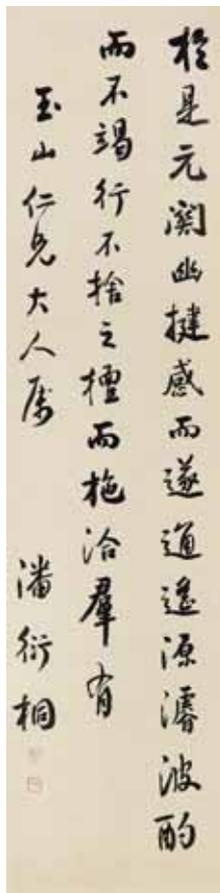 於是元關幽揵感而遂通遙源濬波酌
而不竭行不捨之檀而施洽羣有
玉山仁兄大人属
潘衍桐